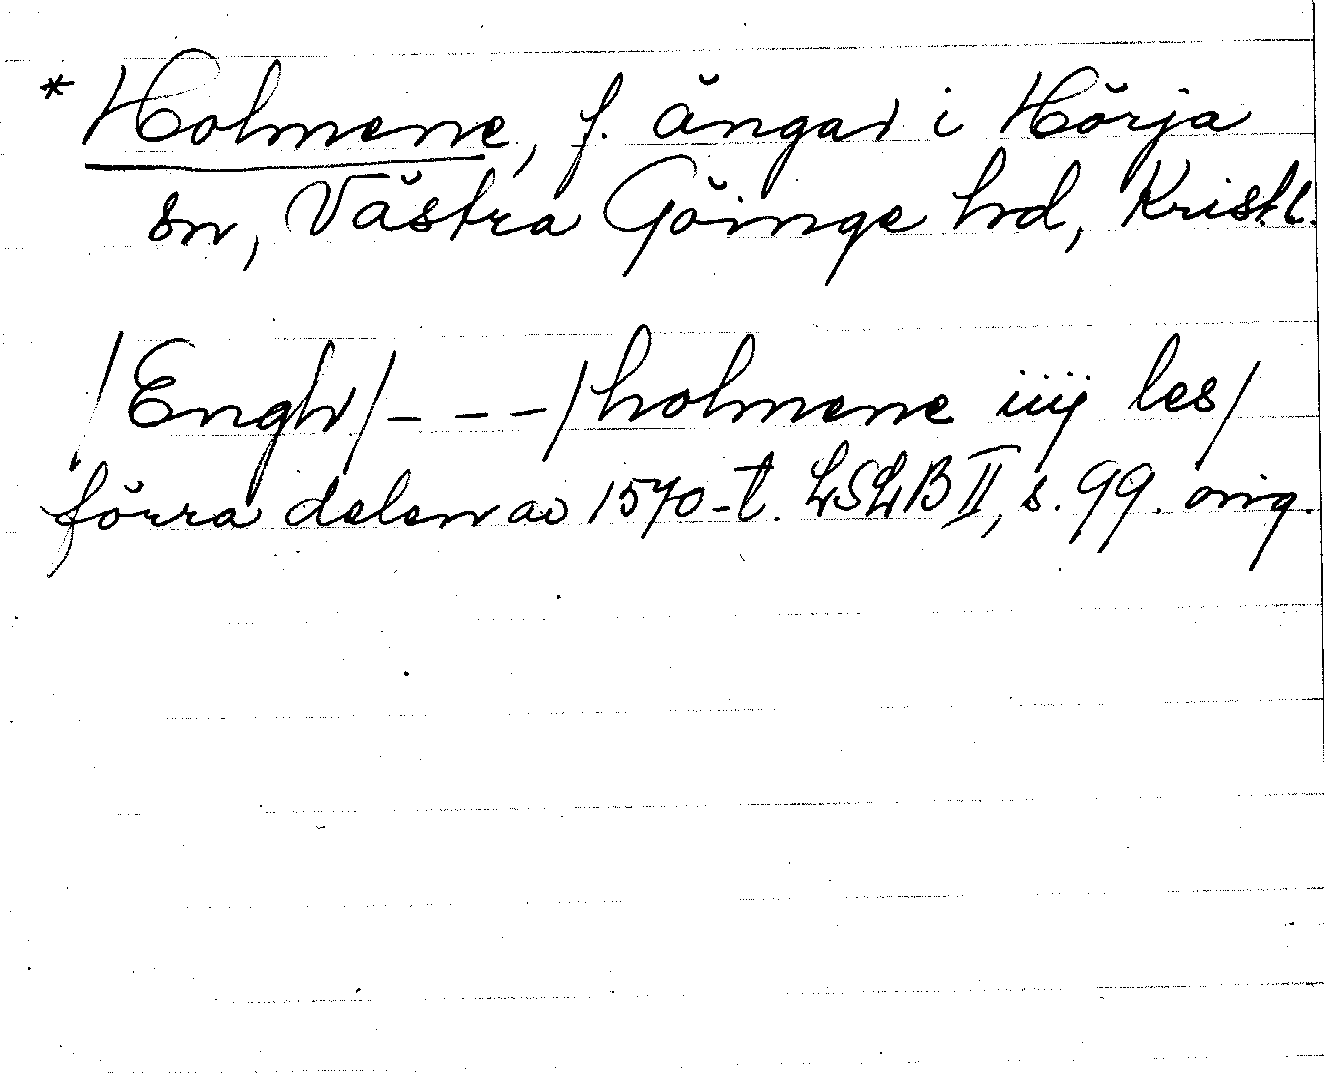 * Holmene, f. ängar i Hörja
sn, Västra Göinge hd, Kristl.
/Engh/---/holmene iiij les/
förra delen av 1570-t. LSLB II, s. 99. orig.